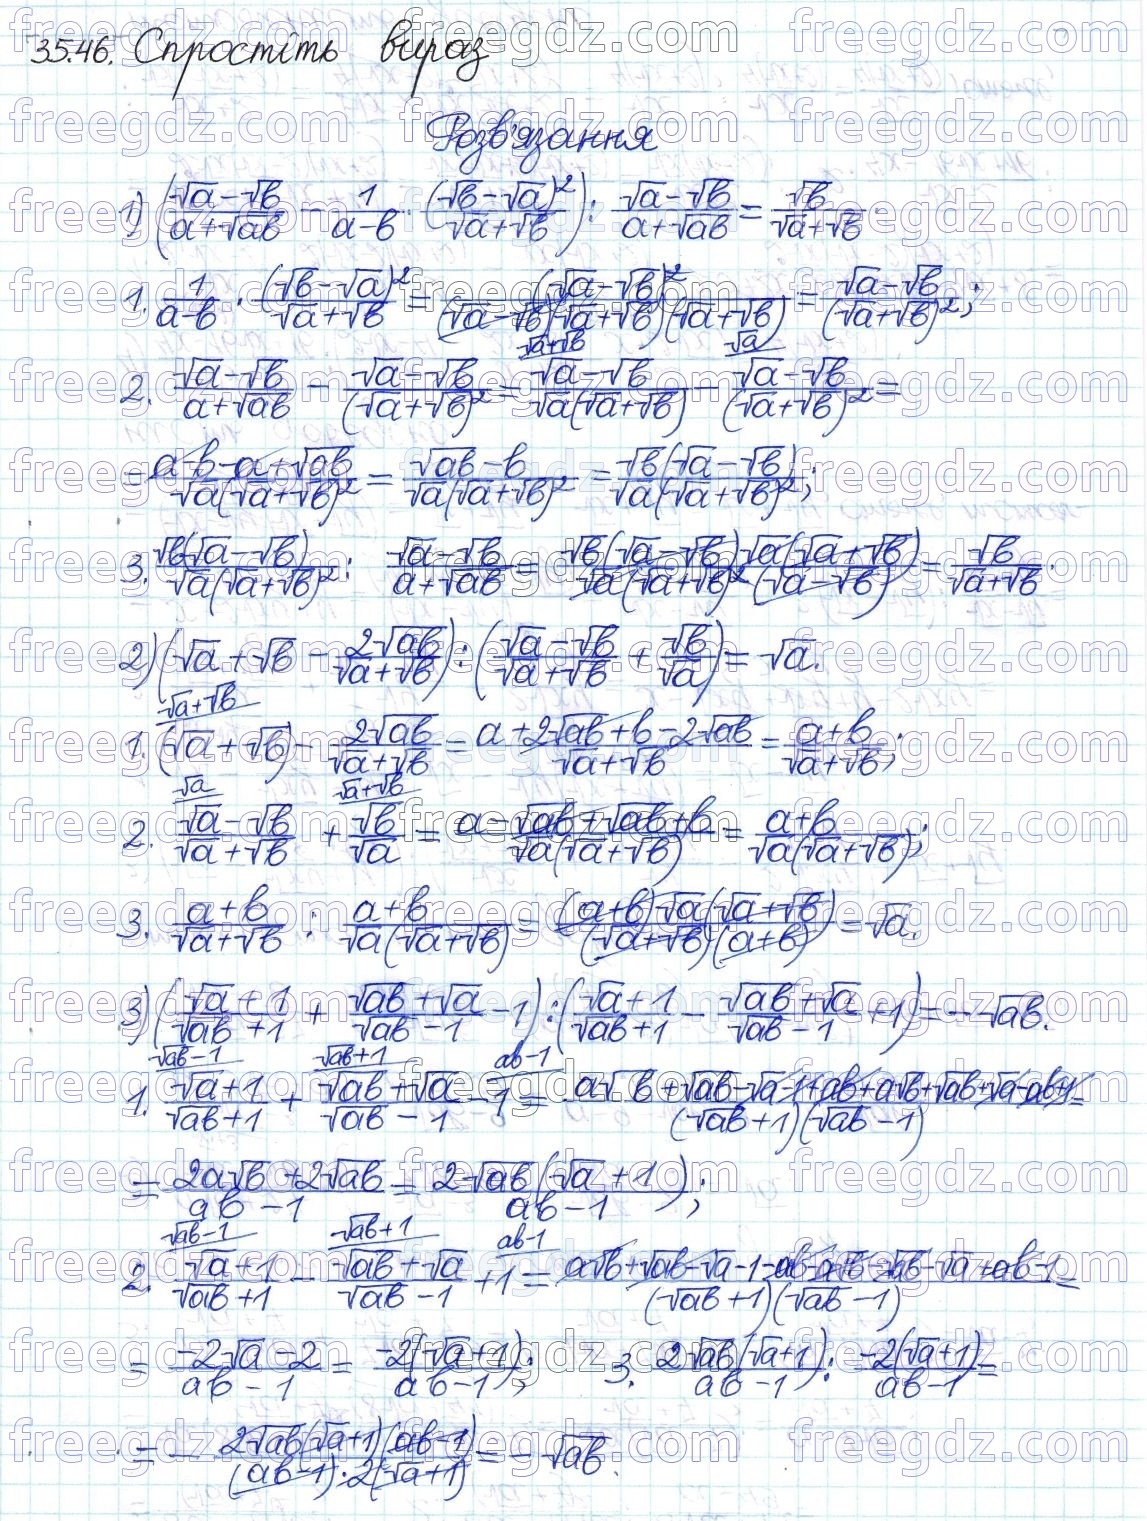 35.46. Спростіть вираз
Розв'язання
1) ((√a−√b)/(a+√ab) − 1/(a−b) · (√b−√a)²/(√a+√b)) : (√a−√b)/(a+√ab) = √b/(√a+√b)
1. 1/(a−b) · (√b−√a)²/(√a+√b) = (√a−√b)²/((√a−√b)(√a+√b)(√a+√b)) = (√a−√b)/(√a+√b)²;
√a+√b √a
2. (√a−√b)/(a+√ab) − (√a−√b)/(√a+√b)² = (√a−√b)/(√a(√a+√b)) − (√a−√b)/(√a+√b)² =
= (a−b−a+√ab)/(√a(√a+√b)²) = (√ab−b)/(√a(√a+√b)²) = √b(√a−√b)/(√a(√a+√b)²);
3. √b(√a−√b)/(√a(√a+√b)²) : (√a−√b)/(a+√ab) = √b(√a−√b)√a(√a+√b)/(√a(√a+√b)²(√a−√b)) = √b/(√a+√b).
2) (√a+√b − 2√ab/(√a+√b)) : ((√a−√b)/(√a+√b) + √b/√a) = √a.
√a+√b
1. (√a+√b) − 2√ab/(√a+√b) = (a+2√ab+b−2√ab)/(√a+√b) = (a+b)/(√a+√b);
√a √a+√b
2. (√a−√b)/(√a+√b) + √b/√a = (a−√ab+√ab+b)/(√a(√a+√b)) = (a+b)/(√a(√a+√b));
3. (a+b)/(√a+√b) : (a+b)/(√a(√a+√b)) = (a+b)√a(√a+√b)/((√a+√b)(a+b)) = √a.
3) ((√a+1)/(√ab+1) + (√ab+√a)/(√ab−1) − 1) : ((√a+1)/(√ab+1) − (√ab+√a)/(√ab−1) + 1) = −√ab.
√ab−1 √ab+1 ab−1
1. (√a+1)/(√ab+1) + (√ab+√a)/(√ab−1) − 1 = (a√b+√ab−√a−1+ab+a√b+√ab+√a−ab+1)/((√ab+1)(√ab−1)) =
= (2a√b+2√ab)/(ab−1) = 2√ab(√a+1)/(ab−1);
√ab−1 √ab+1 ab−1
2. (√a+1)/(√ab+1) − (√ab+√a)/(√ab−1) + 1 = (a√b+√ab−√a−1−ab−a√b−√ab−√a+ab−1)/((√ab+1)(√ab−1)) =
= (−2√a−2)/(ab−1) = −2(√a+1)/(ab−1); 3. 2√ab(√a+1)/(ab−1) : −2(√a+1)/(ab−1) =
= − 2√ab(√a+1)(ab−1)/((ab−1)·2(√a+1)) = −√ab.